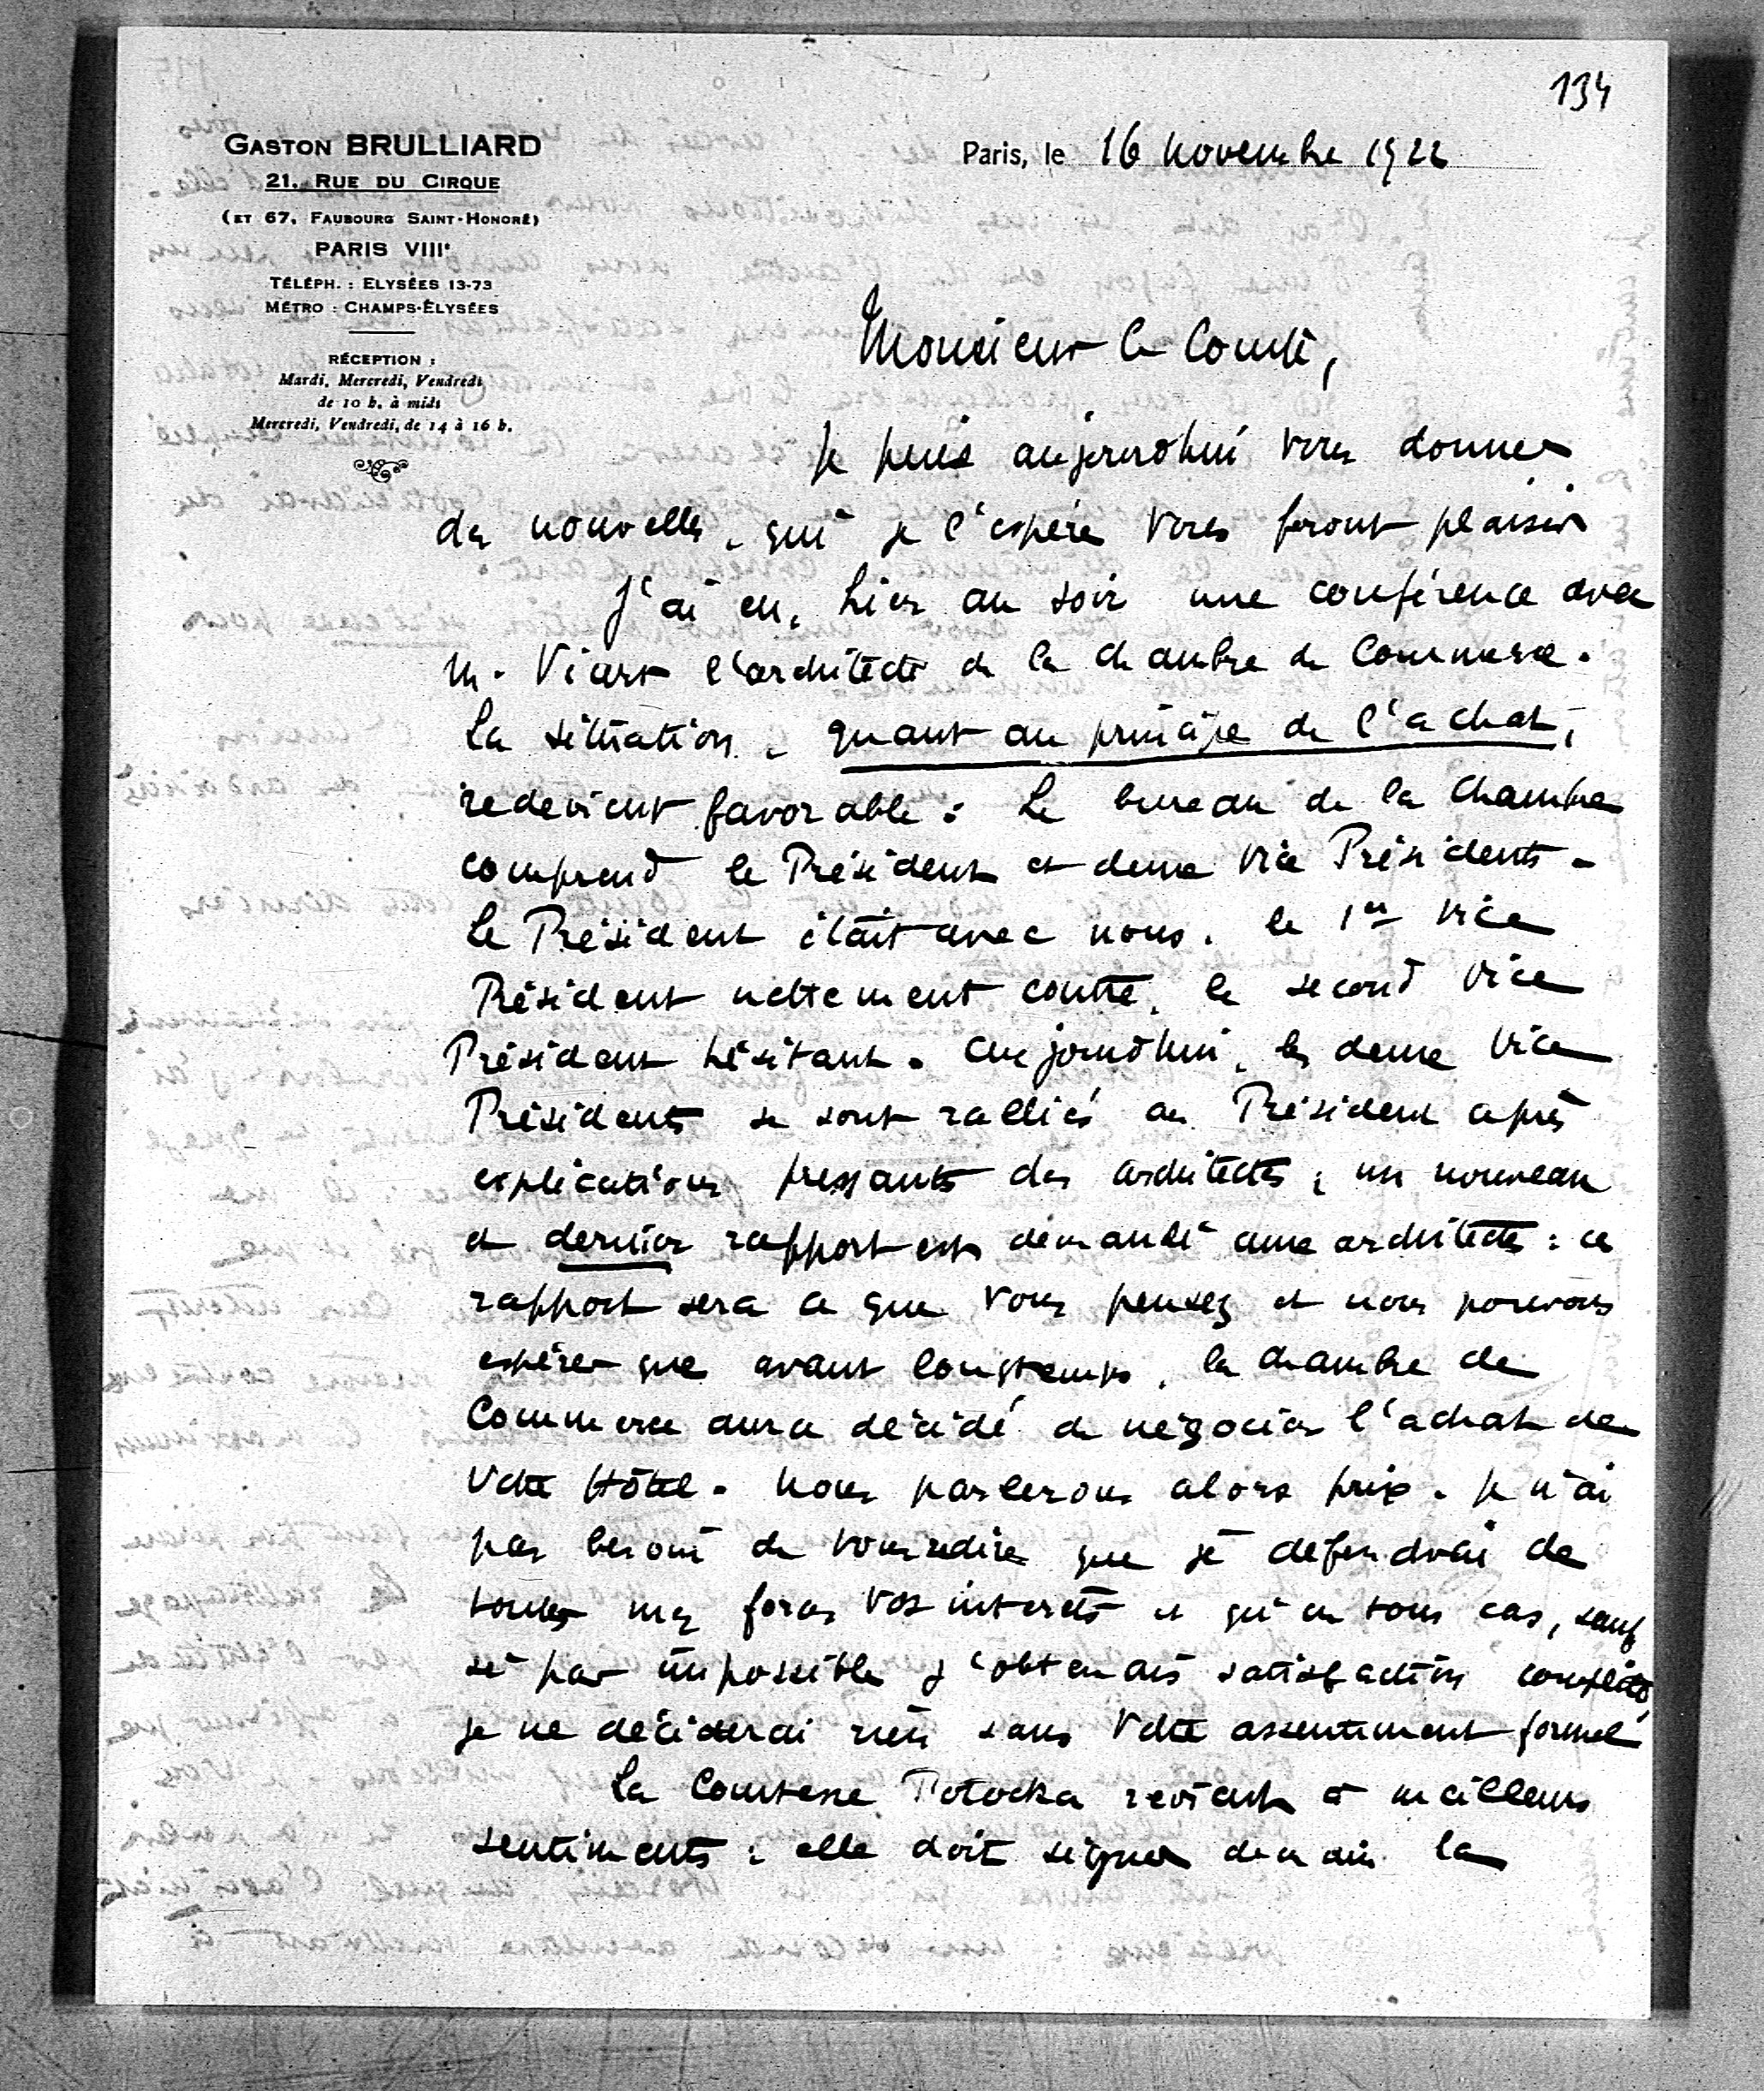 134
GASTON BRULLIARD
21, RUE DU CIRQUE
(ET 67, FAUBOURG SAINT-HONORÉ)
PARIS VIIIe
TÉLÉPH. : ELYSÉES 13-73
MÉTRO : CHAMPS-ÉLYSÉES
RÉCEPTION :
Mardi, Mercredi, Vendredi
de 10 h. à midi
Mercredi, Vendredi, de 14 à 16 h.
Paris, le 16 novembre 1922
Monsieur le Comte,
Je puis aujourd'hui vous donner
des nouvelles, qui je l'espère vous feront plaisir
J'ai eu, hier au soir une conférence avec
M. Viart l'architecte de la Chambre de Commerce.
La situation, quant au principe de l'achat,
redevient favorable : Le bureau de la Chambre
comprend le Président et deux Vice Présidents -
Le Président était avec nous. le 1er Vice
Président nettement contre, le second Vice
Président hésitant. Aujourd'hui, les deux Vice
Présidents se sont ralliés au Président après
explications pressantes des architectes ; un nouveau
et dernier rapport est demandé aux architectes : ce
rapport sera ce que vous pensez et nous pouvons
espérer que avant longtemps, la Chambre de
Commerce aura décidé de négocier l'achat de
Votre Hôtel. Nous parlerons alors prix. Je n'ai
pas besoin de vous redire que je défendrai de
toutes mes forces vos intérêts et qu'en tous cas, sauf
si par impossible j'obtenais satisfaction complète,
je ne déciderai rien sans Votre assentiment formel
La Comtesse Potocka revient à meilleurs
sentiments : elle doit signer demain la